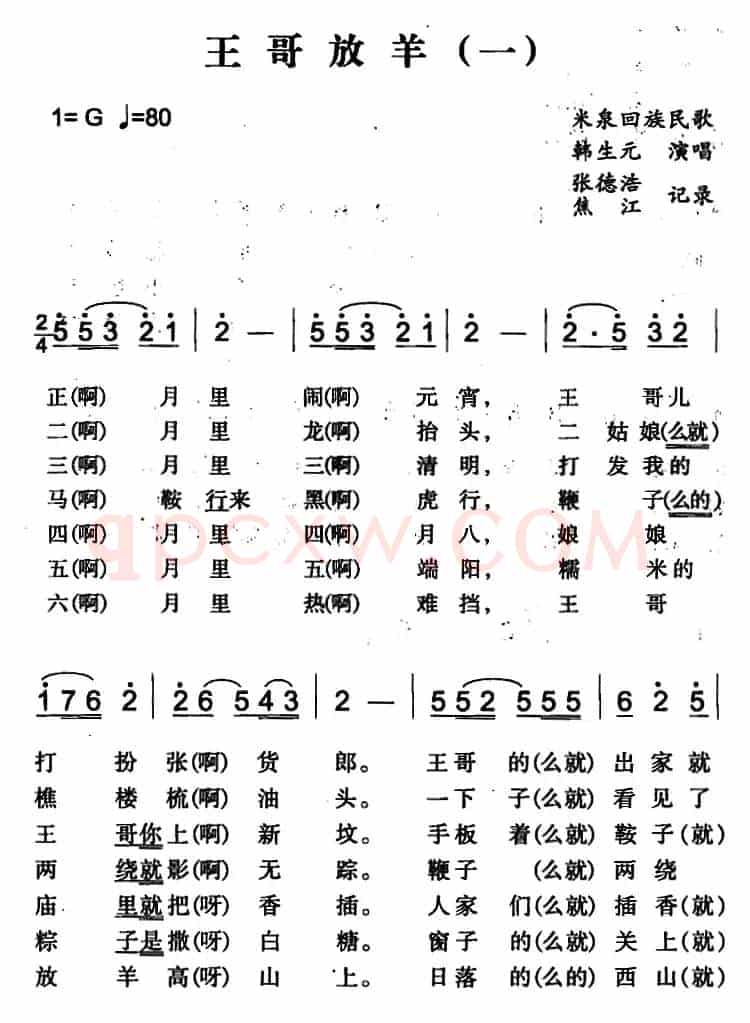 王哥放羊(一)
1=G ♩=80
米泉回族民歌
韩生元 演唱
张德浩
焦江 记录
2/4 5 5 3 2 1 | 2 — | 5 5 3 2 1 | 2 — | 2 · 5 3 2 |
正(啊) 月里 闹(啊) 元宵, 王 哥儿
二(啊) 月里 龙(啊) 抬头, 二 姑娘(么就)
三(啊) 月里 三(啊) 清明, 打 发我的
马(啊) 鞍行来 黑(啊) 虎行, 鞭 子(么的)
四(啊) 月里 四(啊) 月八, 娘 娘
五(啊) 月里 五(啊) 端阳, 糯 米的
六(啊) 月里 热(啊) 难挡, 王 哥
qpcxw.com
1 7 6 2 | 2 6 5 4 3 | 2 — | 5 5 2 5 5 5 | 6 2 5 |
打 扮张(啊)货 郎。 王哥 的(么就)出家就
樵 楼梳(啊)油 头。 一下 子(么就)看见了
王 哥你上(啊)新 坟。 手板 着(么就)鞍子(就)
两 绕就影(啊)无 踪。 鞭子 (么就)两绕
庙 里就把(呀)香 插。 人家 们(么就)插香(就)
粽 子是撒(呀)白 糖。 窗子 的(么就)关上(就)
放 羊高(呀)山 上。 日落 的(么的)西山(就)